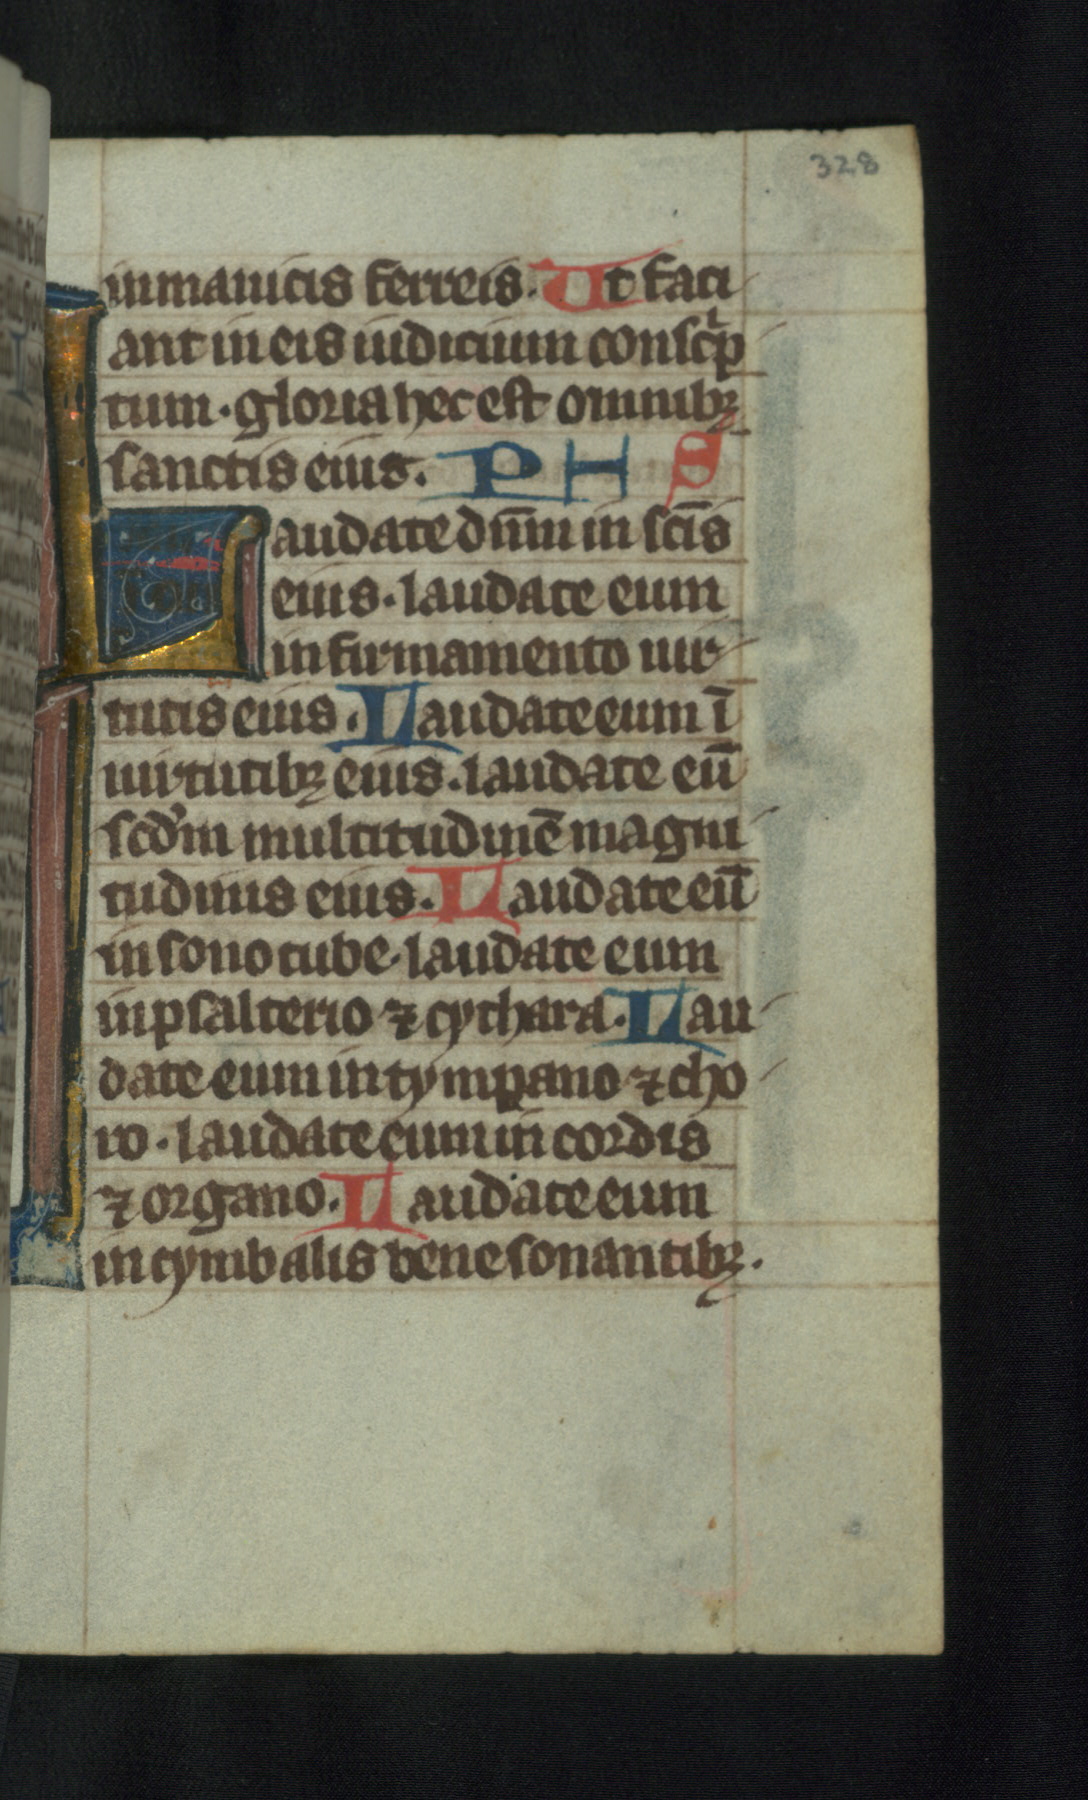 328
in manicis ferreis. Ut faci
ant in eis iudicium conscͥp
tum. gloria hec est omnibꝫ
sanctis eius. P H S
Laudate dn̄m in sc̄is
eius. laudate eum
in firmamento uir
tutis eius. Laudate eum ī
uirtutibꝫ eius. laudate eū
scd̓m multitudinē magni
tudinis eius. Laudate eū
in sono tube. laudate eum
in psalterio ⁊ cythara. Lau
date eum in tympano ⁊ cho
ro. laudate eum in cordis
⁊ organo. Laudate eum
in cymbalis bene sonantibꝫ.